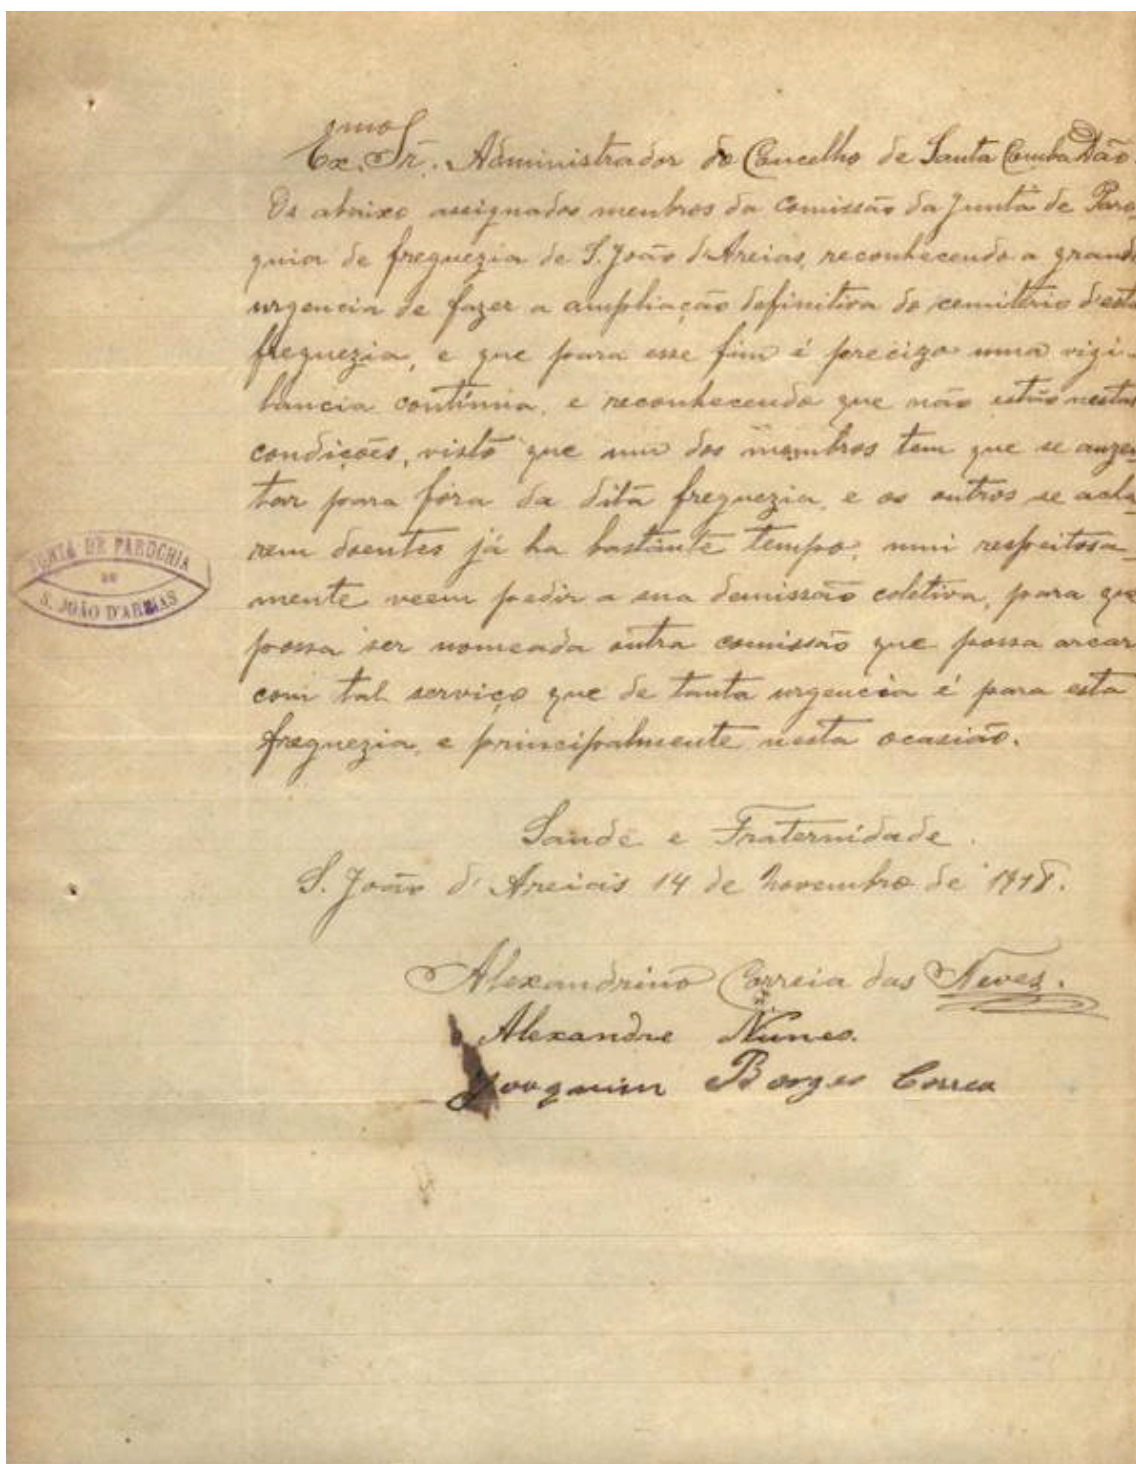 Ex.mo Sr. Administrador do Concelho de Santa Comba Dão.
Os abaixo assignados menbros da Comissão da Junta de Paro
quia de freguezia de S. João d'Areias, reconhecendo a grande
urgencia de fazer a ampliação definitiva do cemitério d'esta
freguezia, e que para esse fim é precizo uma vigi-
lancia contínua, e reconhecendo que não estão nestas
condições, visto que um dos membros tem que se auzen
tar para fóra da dita freguezia, e os outros se acha
rem doentes já ha bastante tempo, mui respeitosa-
mente veem pedir a sua demissão coletiva, para que
possa ser nomeada outra comissão que possa arcar
com tal serviço que de tanta urgencia é para esta
freguezia, e principalmente nesta ocasião.
JUNTA DE PAROCHIA
DE
S. JOÃO D'AREIAS
Saude e Fraternidade.
S. João d'Areias 14 de Novembro de 1918.
Alexandrino Correia das Neves.
Alexandre Nunes.
Joaquim Borges Correa